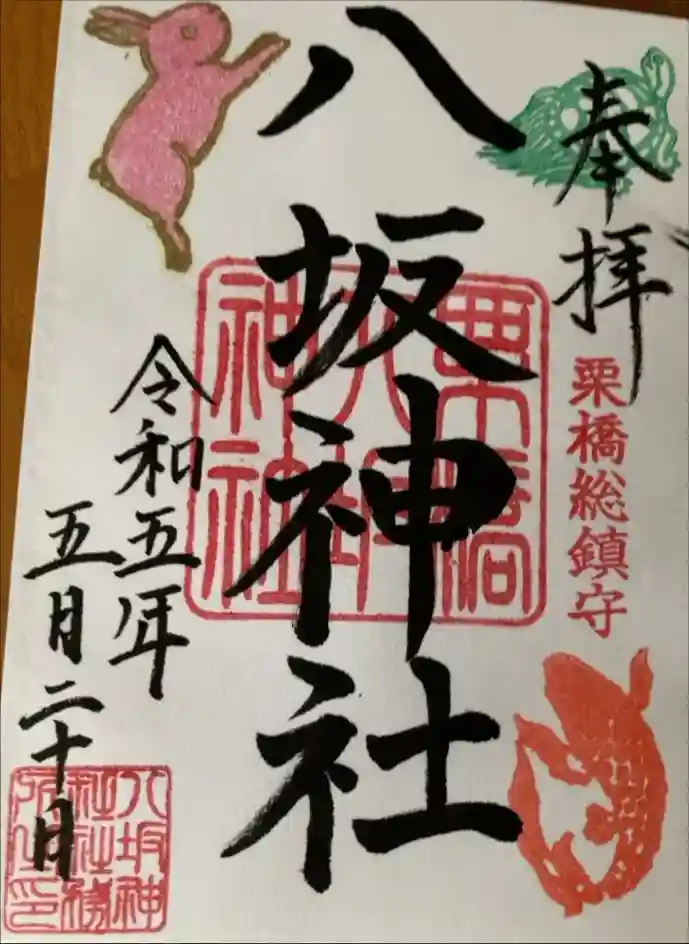 奉拝
栗橋総鎮守
八坂神社
栗橋
八坂
神社
令和五年
五月二十月
八坂神
社社務
所之印